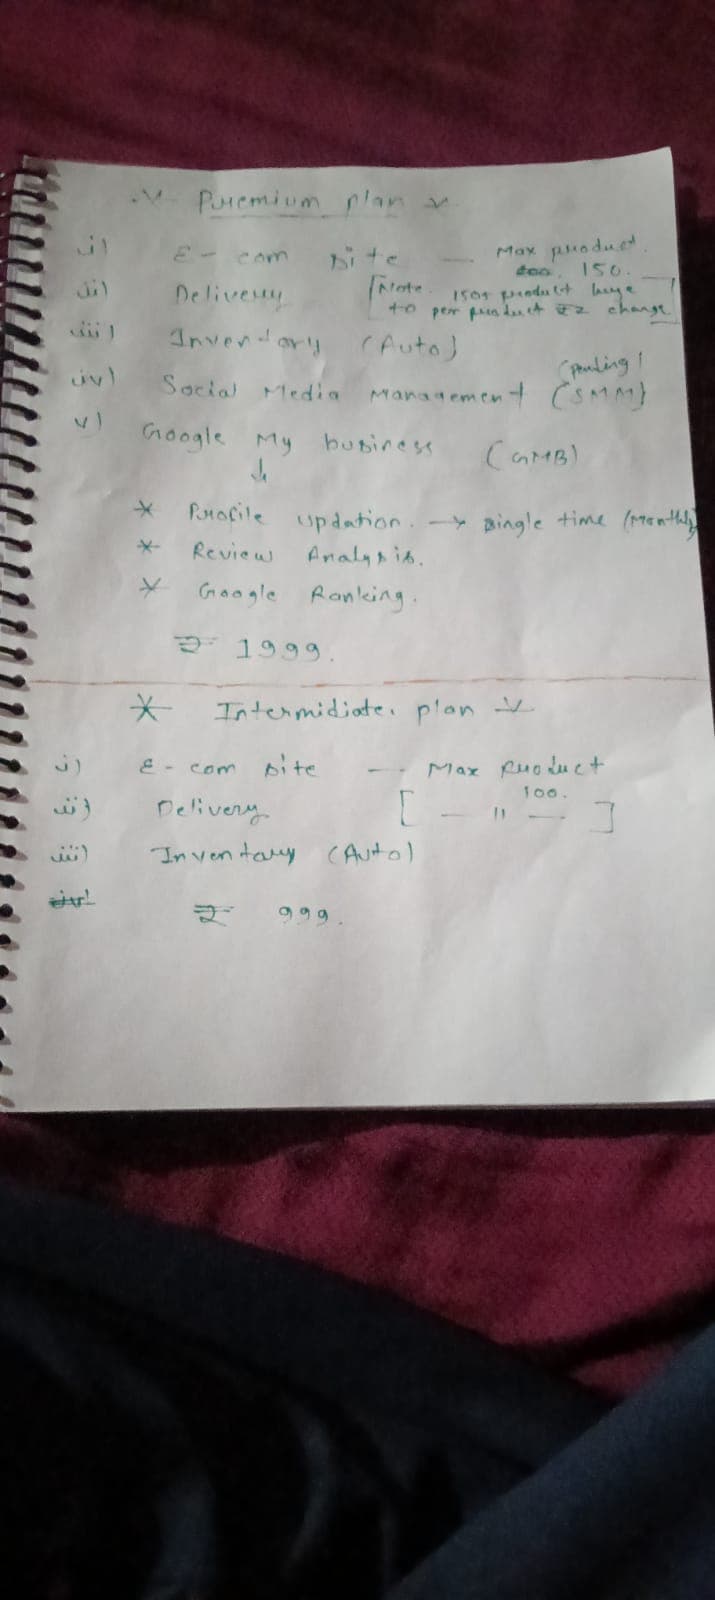 Premium plan
i) E - com site — Max product.
150.
ii) Delivery [Note. 150+ product huye
to per product ₹2 charge]
iii) Inventory (Auto)
(pending)
iv) Social Media Management (SMM)
v) Google My business (GMB)
↓
* Profile updation. → single time (Monthly)
* Review Analysis.
* Google Ranking.
₹ 1999.
* Intermidiate. plan
i) E - com site -- Max Product
100.
ii) Delivery [ — 11 — ]
iii) Inventary (Auto)
₹ 999.